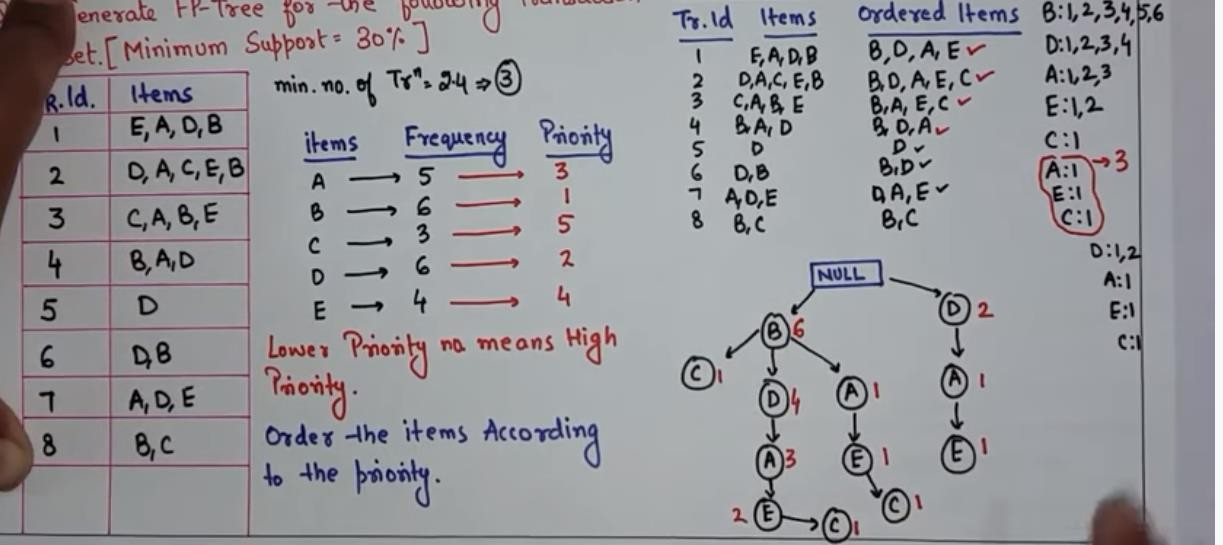 enerate FP-Tree for the following
set. [Minimum Support = 30%]
R.Id. Items
1 E, A, D, B
2 D, A, C, E, B
3 C, A, B, E
4 B, A, D
5 D
6 D, B
7 A, D, E
8 B, C
min. no. of Trⁿ = 2.4 ⇒ 3
items Frequency Priority
A → 5 → 3
B → 6 → 1
C → 3 → 5
D → 6 → 2
E → 4 → 4
Lower Priority no means High
Priority.
Order the items According
to the priority.
Tr. Id Items Ordered Items
1 E, A, D, B B, D, A, E ✓
2 D, A, C, E, B B, D, A, E, C ✓
3 C, A, B, E B, A, E, C ✓
4 B, A, D B, D, A ✓
5 D D ✓
6 D, B B, D ✓
7 A, D, E D, A, E ✓
8 B, C B, C
B:1,2,3,4,5,6
D:1,2,3,4
A:1,2,3
E:1,2
C:1
A:1 → 3
E:1
C:1
D:1,2
A:1
E:1
C:1
NULL
B 6 D 2
C 1 D 4 A 1 A 1
A 3 E 1 E 1
2 E C 1 C 1